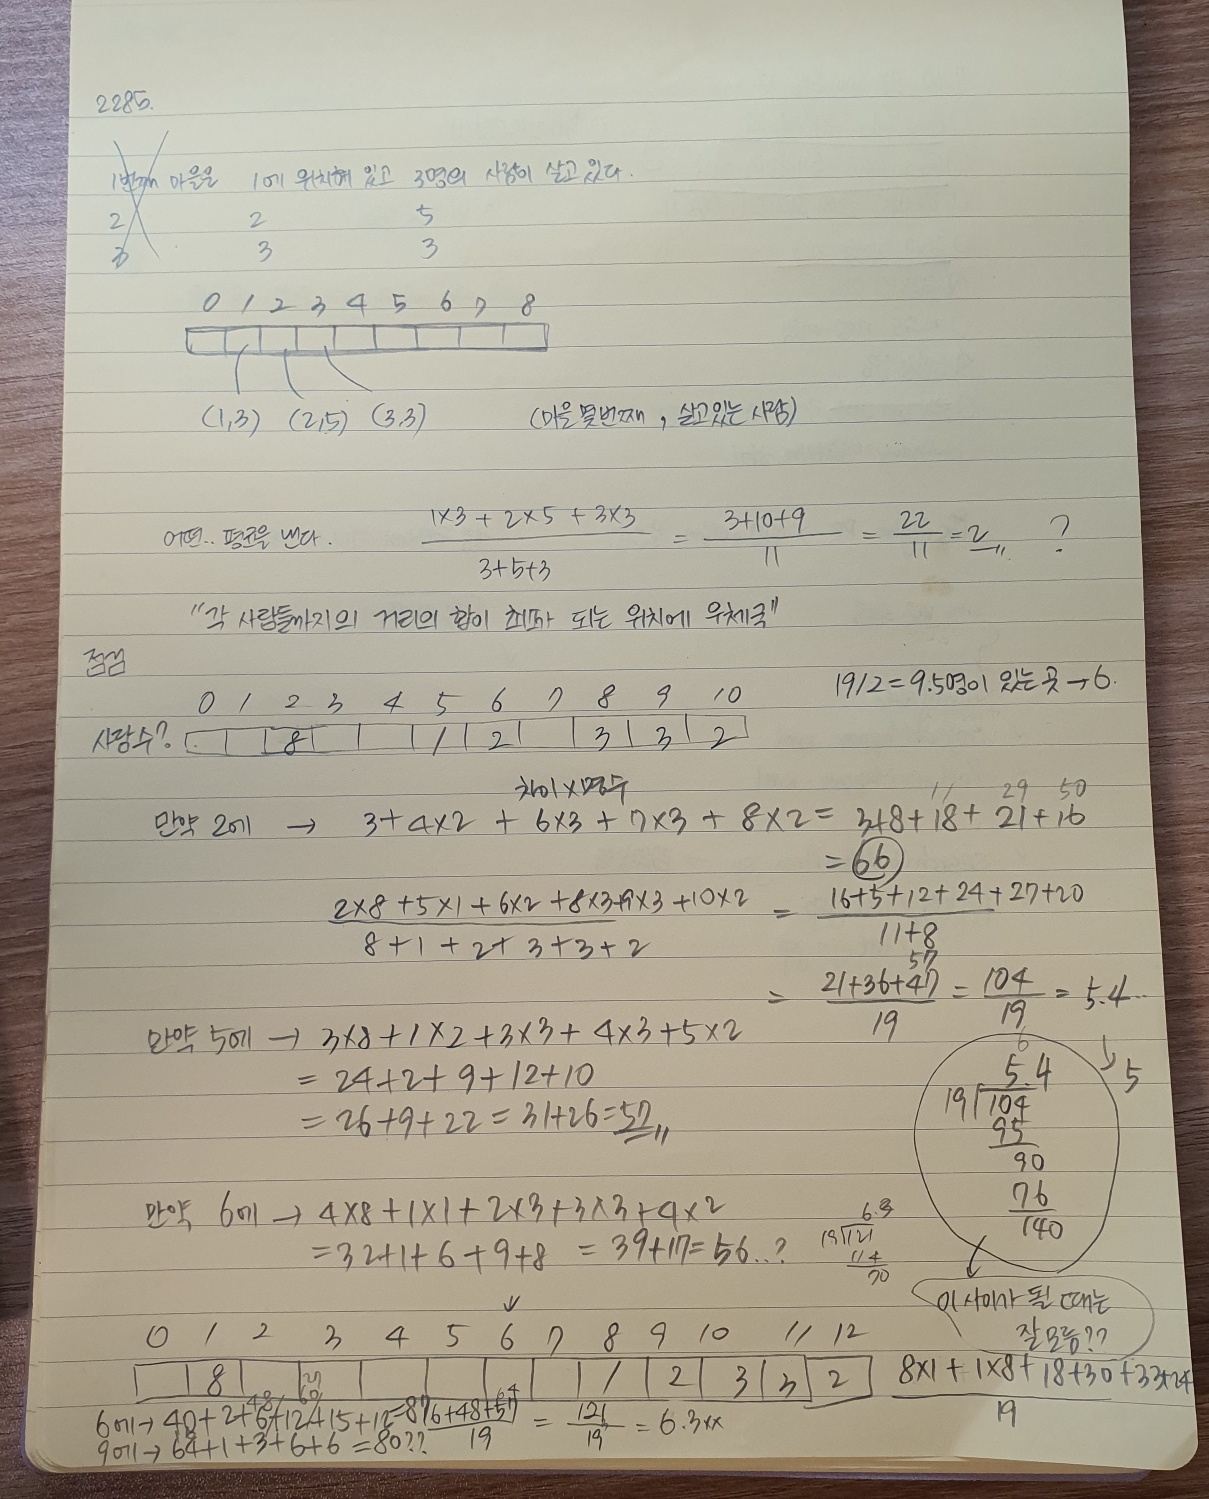 2285.
1번째 마을은 1에 위치해 있고 3명의 사람이 살고 있다.
2 2 5
3 3 3
0 1 2 3 4 5 6 7 8
(1,3) (2,5) (3,3) (마을 몇번째, 살고있는 사람)
어떤.. 평균을 낸다. 1×3 + 2×5 + 3×3 / 3+5+3 = 3+10+9 / 11 = 22 / 11 = 2 ?
"각 사람들까지의 거리의 합이 최소가 되는 위치에 우체국"
점검
19/2 = 9.5명이 있는 곳 → 6.
0 1 2 3 4 5 6 7 8 9 10
사람수? 8 1 2 3 3 2
차이×명수
11 29 50
만약 2에 → 3+4×2 + 6×3 + 7×3 + 8×2 = 3+8+18+21+16
= 66
2×8+5×1+6×2+8×3+9×3+10×2 / 8+1+2+3+3+2 = 16+5+12+24+27+20 / 11+8
57
= 21+36+47 / 19 = 104 / 19 = 5.4..
→ 5
만약 5에 → 3×8+1×2+3×3+4×3+5×2
= 24+2+9+12+10
= 26+9+22 = 31+26=57
6
5.4
19 104
95
90
76
140
만약 6에 → 4×8+1×1+2×3+3×3+4×2
= 32+1+6+9+8 = 39+17=56..?
6.3
19 121
114
70
이 사이가 될 때는
잘 모름??
0 1 2 3 4 5 6 7 8 9 10 11 12
8 1 2 3 3 2
8×1+1×8+18+30+33+24 / 19
6에→ 40+2+6+12+15+12=87
64
16+48+57 / 19 = 121 / 19 = 6.3xx
9에→ 64+1+3+6+6=80??